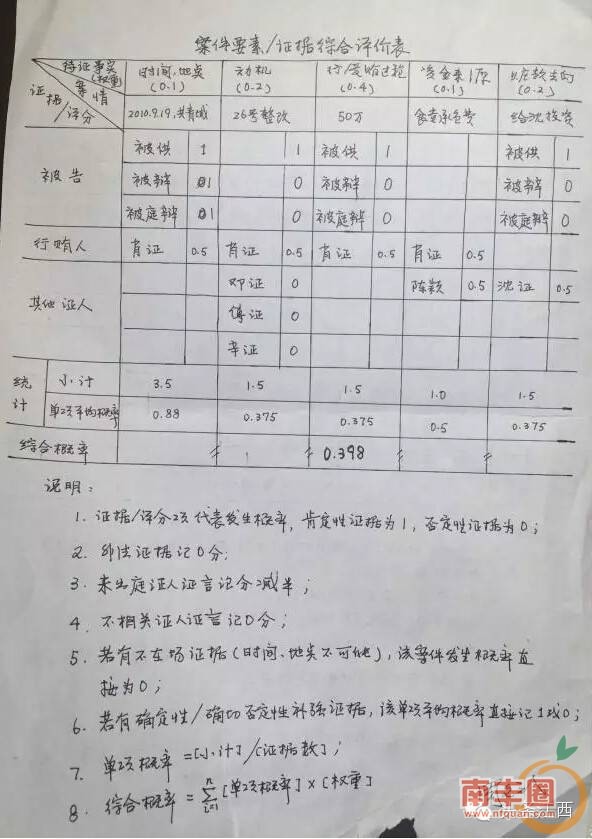 案件要素/证据综合评价表
待证事实(权重) 时间、地点(0.1) 动机(0.2) 行/受贿过程(0.4) 资金来源(0.1) 赃款去向(0.2)
案情
证据/评分 2010.9.19,共青城 26号整改 50万 食堂承包费 给沈投资
被告 被供 1 1 被供 1 被供 1
被辩 1 0 被辩 0 被辩 0
被庭辩 1 0 被庭辩 0 被庭辩 0
行贿人 肖证 0.5 肖证 0.5 肖证 0.5 肖证 0.5
其他证人 邓证 0 陈颖 0.5 沈证 0.5
傅证 0
辛证 0
统计 小计 3.5 1.5 1.5 1.0 1.5
单项平均概率 0.88 0.375 0.375 0.5 0.375
综合概率 0.398
说明:
1. 证据/评分项代表发生概率,肯定性证据为1,否定性证据为0;
2. 非法证据记0分;
3. 未出庭证人证言记分减半;
4. 不相关证人证言记0分;
5. 若有不在场证据(时间、地点不可能),该案件发生概率直
接为0;
6. 若有确定性/确切否定性补强证据,该单项平均概率直接记1或0;
7. 单项概率=[小计]/[证据数];
8. 综合概率=∑ⁿᵢ₌₁[单项概率]×[权重]
南丰圈
www.nfquan.com